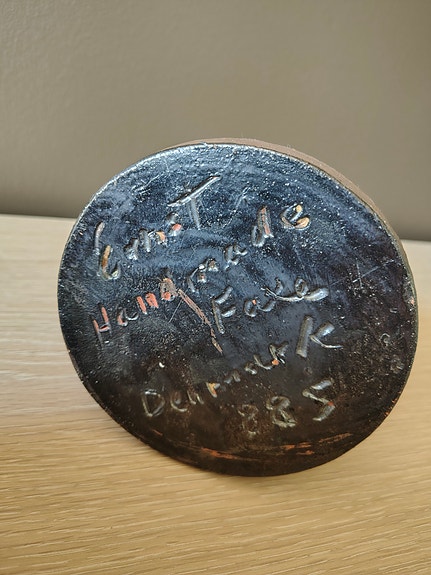 ErnsT
Handmade
Faxe
Denmark
885